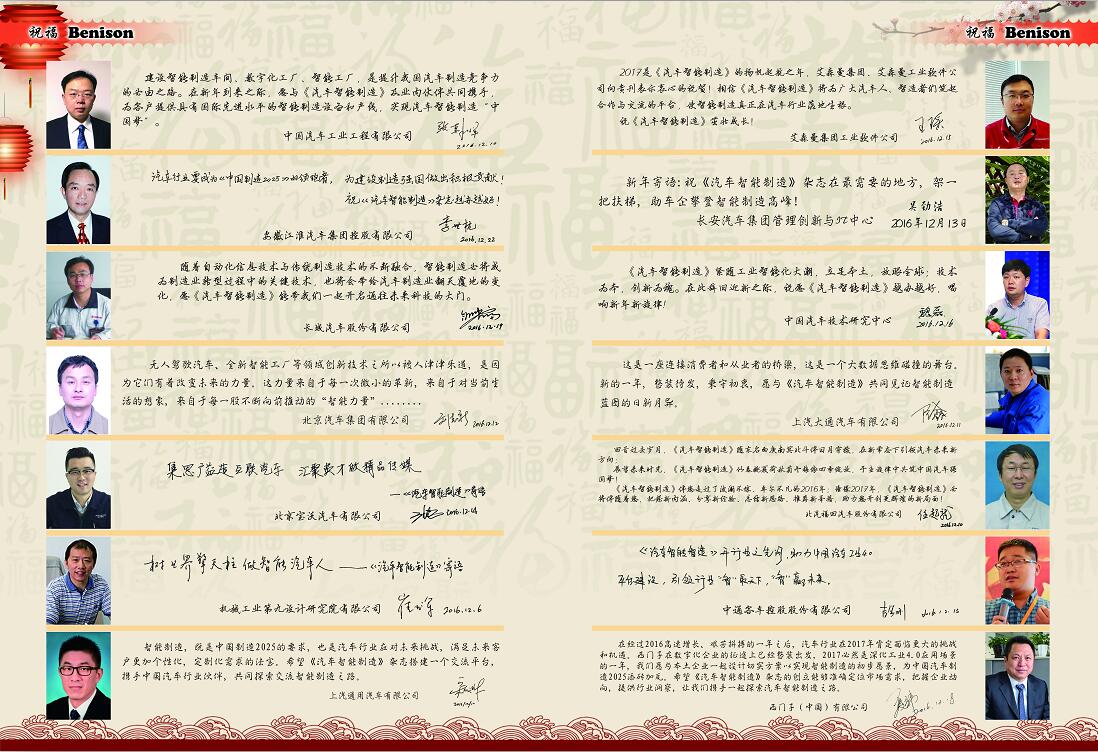 祝福 Benison
建设智能制造车间、数字化工厂、智能工厂，是提升我国汽车制造竞争力
的必由之路。在新年到来之际，愿与《汽车智能制造》及业内伙伴共同携手，
为客户提供具有国际先进水平的智能制造设备和产线，实现汽车智能制造“中
国梦”。
中国汽车工业工程有限公司
2016.12.10
汽车行业要成为《中国制造2025》的领跑者，为建设制造强国做出积极贡献！
祝《汽车智能制造》杂志越办越好！
安徽江淮汽车集团控股有限公司
2016.12.22
随着自动化信息技术与传统制造技术的不断融合，智能制造必将成
为制造业转型过程中的关键技术，也将会带给汽车制造业翻天覆地的变
化，愿《汽车智能制造》能带我们一起开启通往未来科技的大门。
长城汽车股份有限公司
2016.12.19
无人驾驶汽车、全新智能工厂等领域创新技术之所以被人津津乐道，是因
为它们有着改变未来的力量，这力量来自于每一次微小的革新，来自于对当前生
活的想象，来自于每一股不断向前推动的“智能力量”........
北京汽车集团有限公司
2016.12.12
集思广益造互联汽车 汇聚英才做精品传媒
——《汽车智能制造》寄语
北京宝沃汽车有限公司
2016.12.14
树世界擎天柱 做智能汽车人 ——《汽车智能制造》寄语
机械工业第九设计研究院有限公司
2016.12.6
智能制造，既是中国制造2025的要求，也是汽车行业应对未来挑战，满足未来客
户更加个性化，定制化需求的法宝。希望《汽车智能制造》杂志搭建一个交流平台，
携手中国汽车行业伙伴，共同探索交流智能制造之路。
上汽通用汽车有限公司
祝福 Benison
2017是《汽车智能制造》的扬帆起航之年，艾森曼集团、艾森曼工业软件公
司向贵刊表示衷心的祝贺！相信《汽车智能制造》将为广大汽车人、智造者们筑起
合作与交流的平台，使智能制造真正在汽车行业落地生根。
祝《汽车智能制造》茁壮成长！
艾森曼集团工业软件公司
2016.12.15
新年寄语：祝《汽车智能制造》杂志在最需要的地方，架一
把扶梯，助车企攀登智能制造高峰！
吴勃洁
长安汽车集团管理创新与IT中心 2016年12月13日
《汽车智能制造》紧随工业智能化大潮，立足本土，放眼全球；技术
为本，创新为魂。在此辞旧迎新之际，祝愿《汽车智能制造》越办越好，唱
响新年新旋律！
中国汽车技术研究中心
2016.12.16
这是一座连接消费者和从业者的桥梁，这是一个大数据思维碰撞的舞台。
新的一年，整装待发，秉守初衷，愿与《汽车智能制造》共同见证智能制造
蓝图的日新月异。
上汽大通汽车有限公司
2016.12.11
回首过去岁月，《汽车智能制造》随东名西康南冥北斗傍日月常徽，在新常态下引航汽车未来新
方向；
展望未来时光，《汽车智能制造》
国梦！
《汽车智能制造》伴您走过了波澜不惊、卓尔不凡的2016年；憧憬2017年，《汽车智能制造》必
将伴随着您，把握新内涵、分享新经验、总结新思路、推荐新举措，助力您开创更辉煌的新局面！
北汽福田汽车股份有限公司
2016.12.10
《汽车智能智造》开行业之先河，助力中国汽车工业4.0
中通客车控股股份有限公司
2016.12.15
在经过2016高速增长、艰苦拼搏的一年之后，汽车行业在2017年肯定面临更大的挑战
和机遇。西门子在数字化企业的征途上已经整装出发，2017必然是深化工业4.0应用场景
的一年，我们愿与本土企业一起设计切实方案以实现智能制造的初步愿景，为中国汽车制
造2025添砖加瓦。希望《汽车智能制造》杂志的创立能够准确定位市场需求，把握企业动
向，提供行业洞察，让我们携手一起探索汽车智能制造之路。
西门子（中国）有限公司